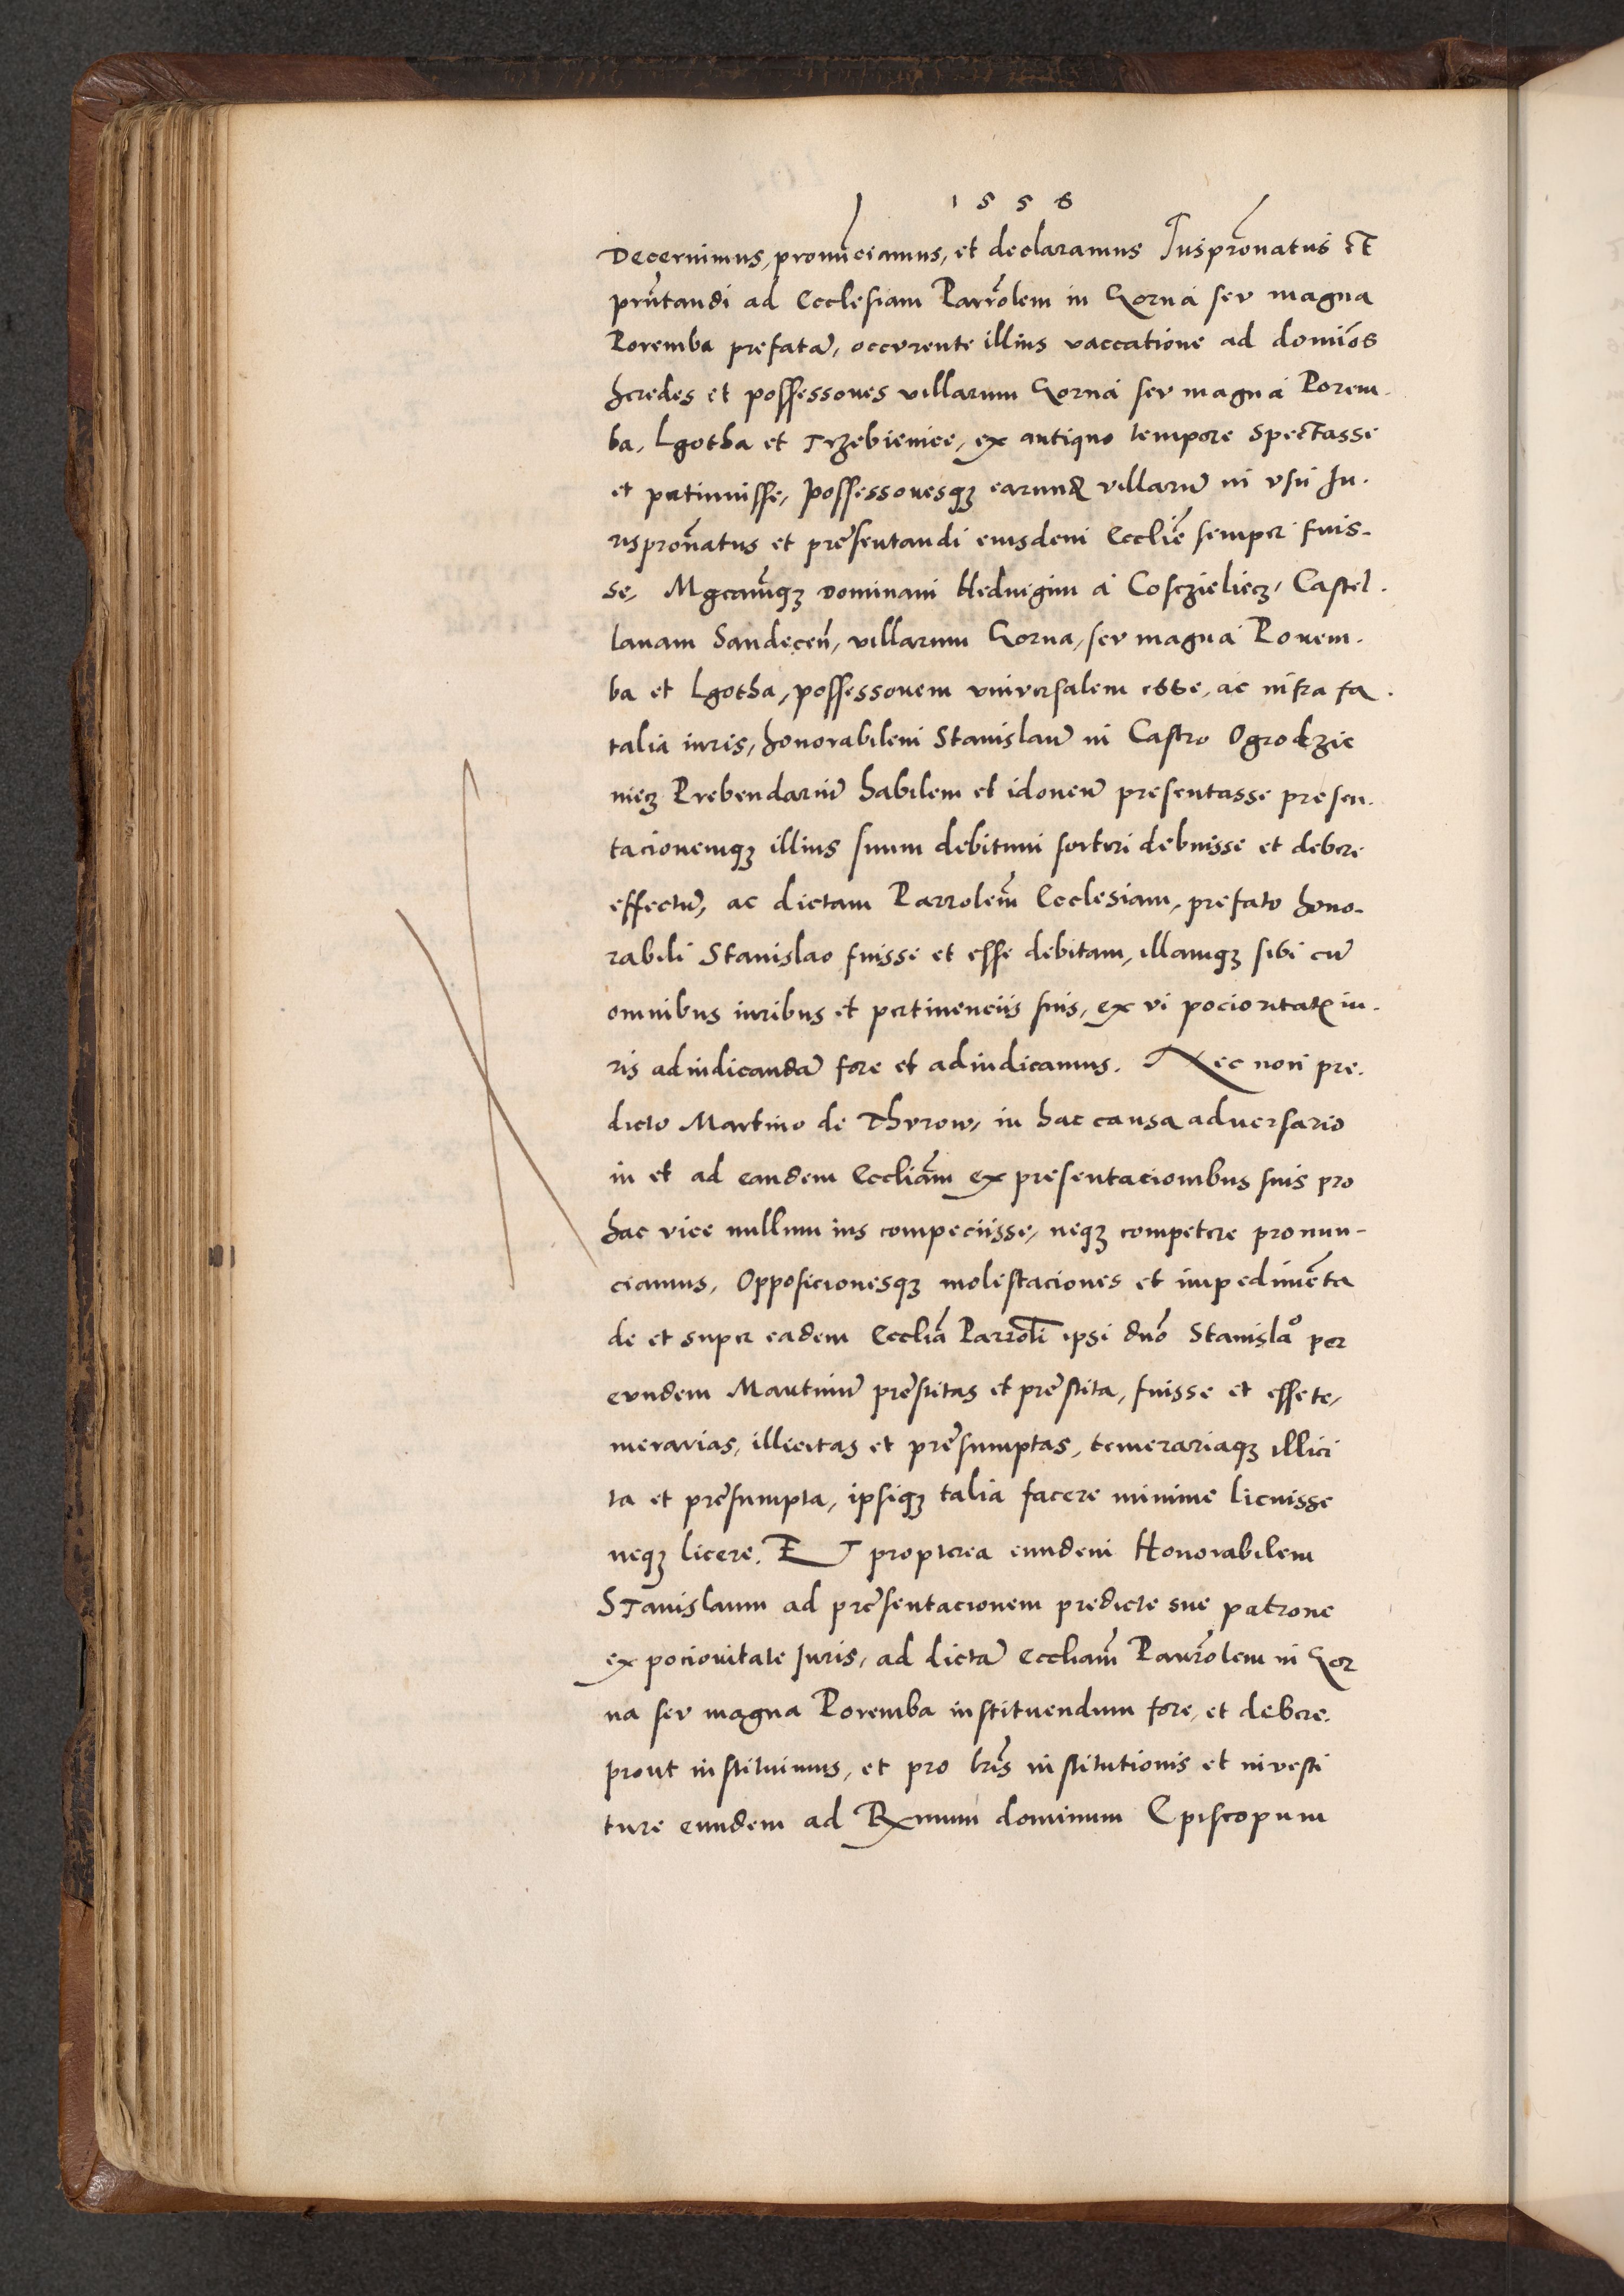 1556
Decernimus, pronũciamus, et declaramus Iuspronatus et
prñtandi ad Ecclesiam Parrolem in Gorna seu magna
Poremba prefatā, occurente illius vaccatione ad domiōs
heredes et possessores villarum Gorna seu magna Porem-
ba, Lgotha et Trzebienice, ex antiquo tempore spectasse
et pertinuisse, possessoresqꝫ earund villarū in vsu Iu-
rispronatus et presentandi eiusdem Ecclie semper fuis-
se, Mgcamqꝫ Dominam Heduigim a Cosczieliecz, Castel-
lanam Sandecen, villarum Gorna, seu magna Porem-
ba et Lgotha, possessorem vniuersalem esse, ac infra fa-
talia iuris, honorabilem Stanislaū in Castro Ogrodzie
niecz Prebendariū habilem et idoneū presentasse presen-
tacionemqꝫ illius suum debitum sortiri debuisse et debere
effectū, ac dictam Parrolem Ecclesiam, prefato hono-
rabili Stanislao fuisse et esse debitam, illamqꝫ sibi cū
omnibus iuribus et pertinenciis suis, ex vi pocioritatꝭ iu-
ris adiudicandā fore et adiudicamus. Nec non pre-
dicto Martino de Thurow, in hac causa aduersario
in et ad eandem Eccliam ex presentacionibus suis pro
hac vice nullum ius compeciisse, neqꝫ competere pronun-
ciamus, Opposicionesqꝫ molestaciones et impedimēta
de et super eadem Ecclia Parroli ipsi dno Stanislao per
eundem Martinū prestitas et prestita, fuisse et esse te,
merarias, illicitas et presumptas, temerariaqꝫ illici
ta et presumpta, ipsiqꝫ talia facere minime licuisse
neqꝫ licere. ET propterea eundem Honorabilem
STanislaum ad presentacionem predicte sue patrone
ex pocioritate Iuris, ad dictā Eccliam Parrolem in Gor
na seu magna Poremba instituendum fore, et debere.
prout instituimus, et pro lris institutionis et inuesti
ture eundem ad Rxmum dominum Episcopum